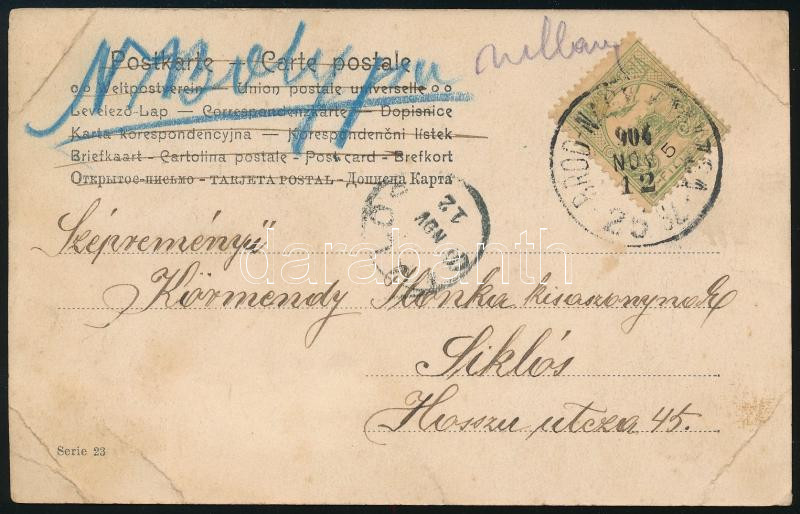 N. Bolypu
Postkarte – Carte postale
Weltpostverein – Union postale universelle
Levelező-Lap – Correspondenzkarte – Dopisnice
Karta korespondencyjna – Korespondenční listek
Briefkaart – Cartolina postale – Post card – Brefkort
Открытое письмо – TARJETA POSTAL – Дописна Карта
904
NOV
12
25
5
12
NOV
Szépreményű
Körmendy Ilonka kisasszonynak
Siklós
Hosszu utcza 45.
Serie 23
darabanth